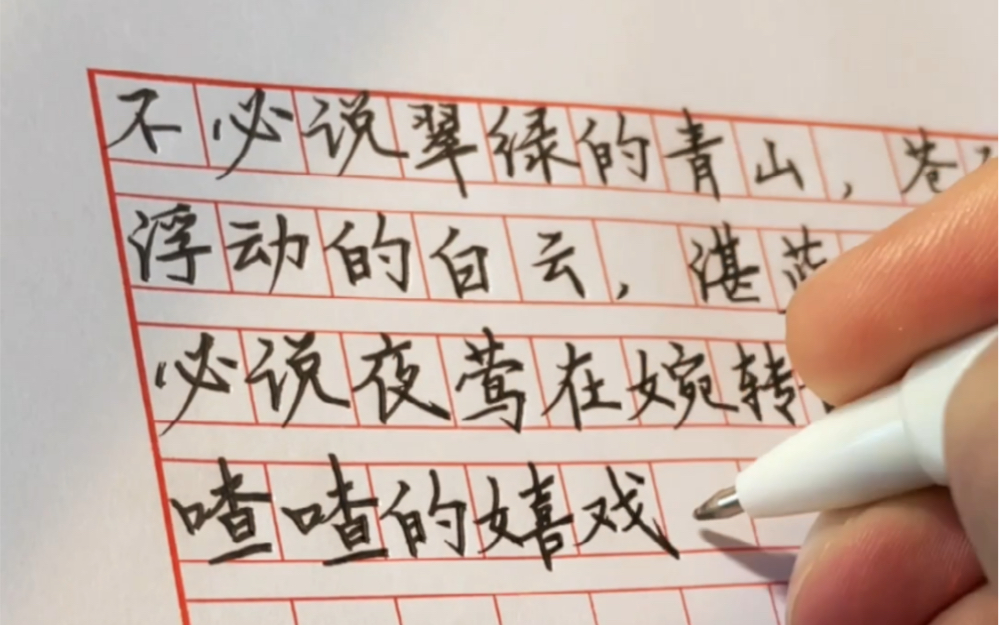 不必说翠绿的青山，苍
浮动的白云，湛蓝
必说夜莺在婉转
喳喳的嬉戏